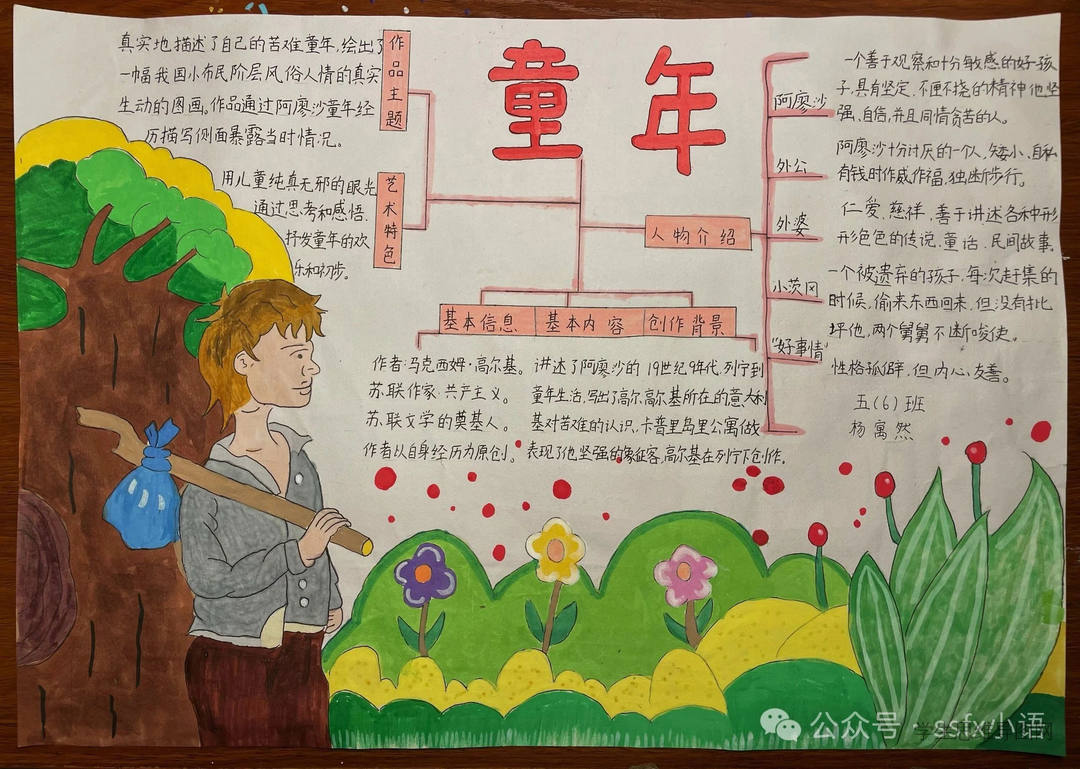 童年
真实地描述了自己的苦难童年,绘出了
一幅我国小布民阶层风俗人情的真实
生动的图画。作品通过阿廖沙童年经
历描写侧面暴露当时情况。
作品主题
用儿童纯真无邪的眼光
通过思考和感悟.
抒发童年的欢
乐和初步。
艺术特色
人物介绍
阿廖沙
一个善于观察和十分敏感的好孩
子,具有坚定、不厘不挠的精神他坚
强、自信,并且同情贫苦的人。
外公
阿廖沙十分讨厌的一个人,矮小、自私
有钱时作威作福,独断步行。
外婆
仁爱、慈祥,善于讲述各种形
形色色的传说、童话、民间故事。
小茨冈
一个被遗弃的孩子,每次赶集的
时候,偷来东西回来,但没有批
坪他,两个舅舅不断唆使。
"好事情"
性格孤僻,但内心友善。
五(6)班
杨寓然
基本信息
基本内容
创作背景
作者:马克西姆·高尔基。
苏.联作家·共产主义。
苏.联文学的奠基人。
作者以自身经历为原创。
讲述了阿廖沙的19世纪9年代,列宁到
童年生活,写出了高尔.高尔基所在的意大利
基对苦难的认识,卡普里岛里公寓做
表现了他坚强的象征客,高尔基在列宁下创作.
公众号 ssfx小语